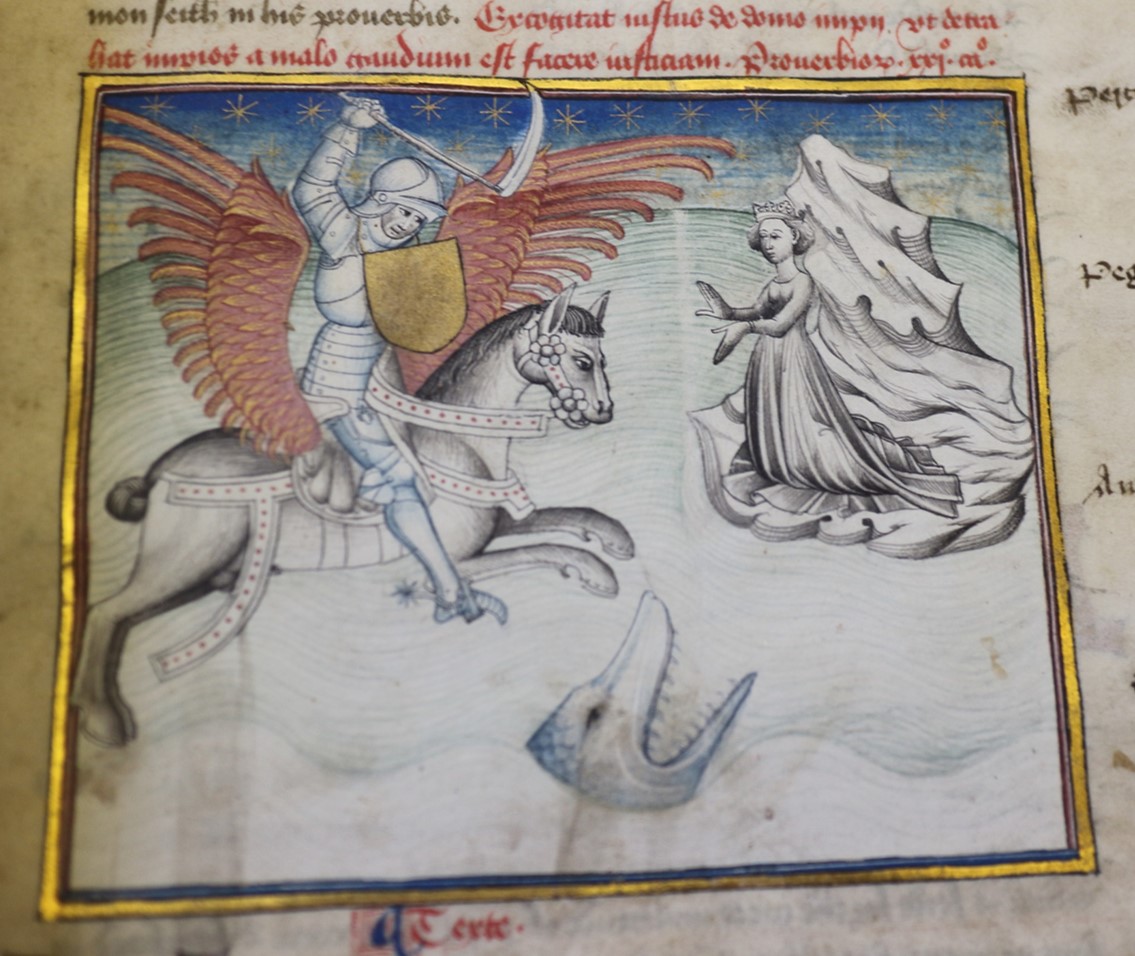 mon seith in his prouerbis. Excogitat iustus de domo impii. vt detra
hat impios a malo gaudium est facere iusticiam. Prouerbioꝝ. xxjº. caº.
Per
Peg
Au
Texte.